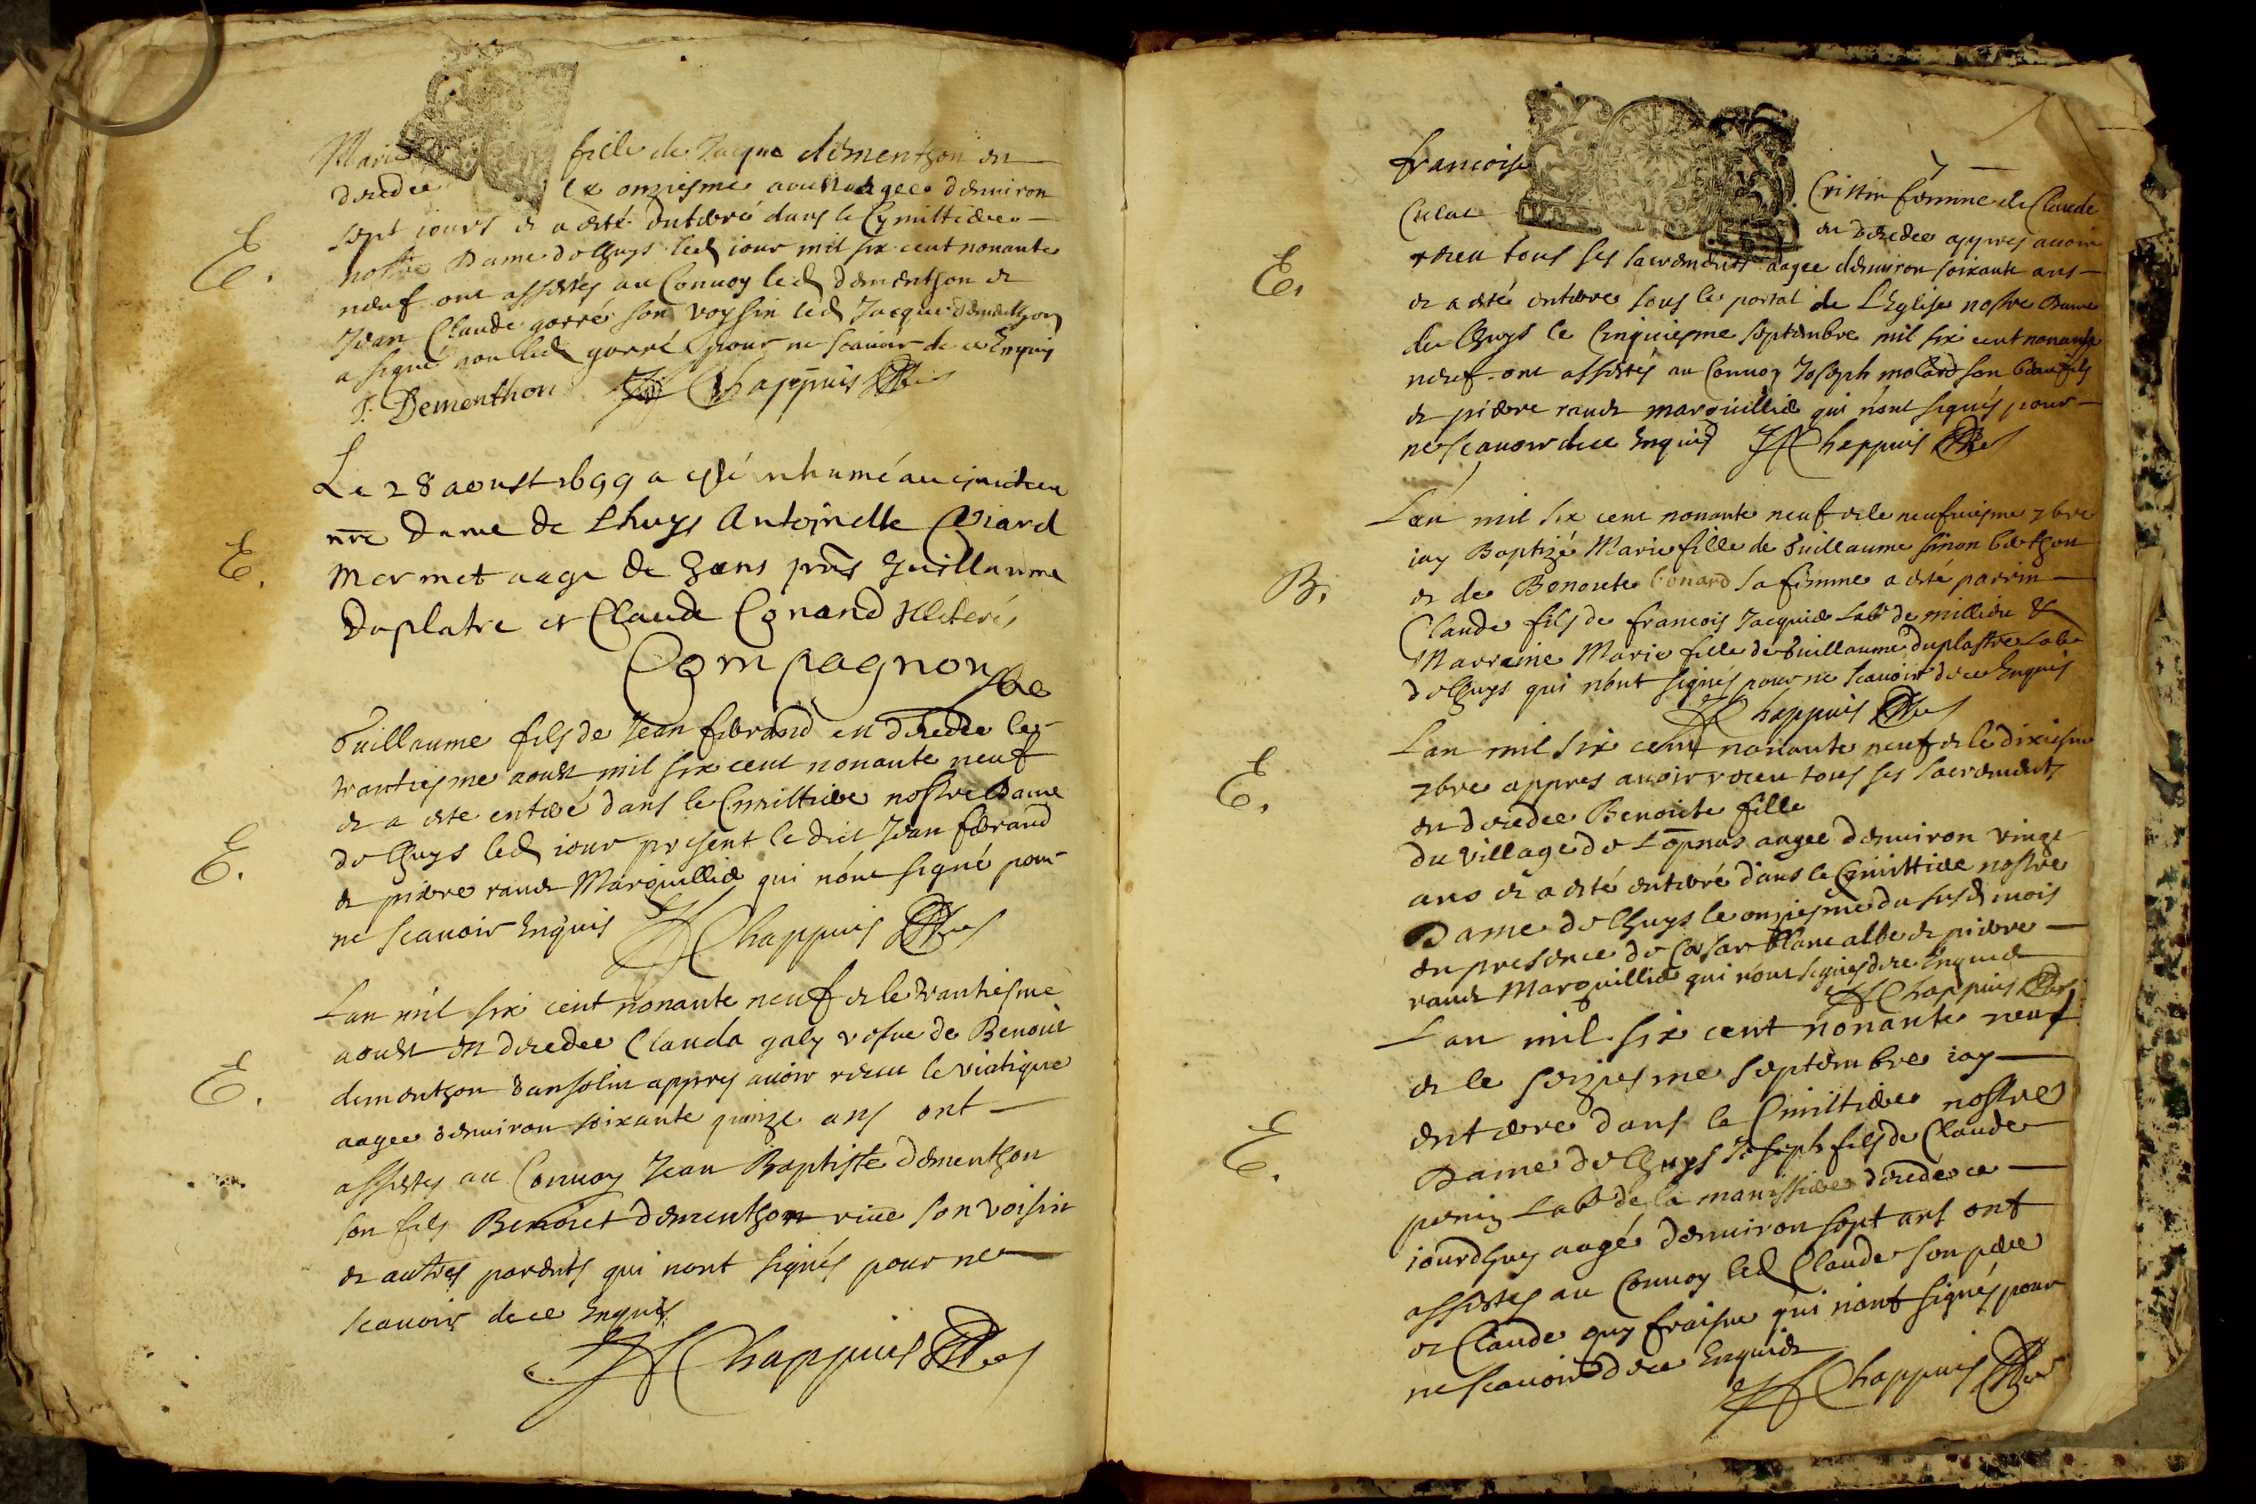 Marie fille de Jacque dementhon est
decedee le onziesme aoust aagee denviron
sept jours et a esté enterré dans le Cymittiere
nostre Dame de lhuys led jour mil six cent nonante
neuf ont assistés au Convoy led dementhon et
Jean Claude gorré son voysin led Jacque dementhon
a signé non led gorré pour ne scavoir de ce Enquis
J: Dementhon Chappuis
E.
Le 28 aoust 1699 a esté inhumé au cimitiere
nre dame de Lhuys Antoinette
Mermet aage de ans pnts guillaume
Duplatre et Claude Conand illiterés
Compagnon
E.
Guillaume fils de Jean feerand est decedee le
trantiesme aoust mil six cent nonante neuf
et a este enteré dans le Cimittiere nostre Dame
de lhuys led jour present le dict Jean feerand
et pierre raude Marguillié qui n'ont signé pour
ne scavoir Enquis Chappuis
E.
Lan mil six cent nonante neuf et le trantiesme
aoust est decedee Clauda galy vefve de Benoit
dementhon dansolin appres avoir receu le viatique
aagee denviron soixante quinze ans ont
assistes au Convoy Jean Baptiste dementhon
son fils Benoict dementhon son voisin
et autres parents qui nont signés pour ne
scavoir de ce Enquis
Chappuis
E.
francoise Cristin femme de Claude
est decedee appres avoir
receu tous ses sacrements aagee denviron soixante ans
et a esté enterre sous le portal de L'Eglise nostre Dame
de lhuys le Cinquiesme septembre mil six cent nonante
neuf ont assistés au Convoy Joseph molard son beaufils
et pierre raude marguillié qui n'ont signés pour
ne scavoir de ce Enquis Chappuis
E.
Lan mil six cent nonante neuf et le neufviesme 7bre
jay Baptizé Marie fille de Guillaume simon berthon
et de Benoite bonard sa femme a esté parrin
Claude fils de francois Jacquié Labr de millieu et
Marreine Marie fille de Guillaume duplastre Labr
de lhuys qui n'ont signés pour ne scavoir de ce Enquis
Chappuis
B.
Lan mil six cent nonante neuf et le dixiesme
7bre appres avoir receu tous ses sacrements
est decedee Benoite fille
du village de Lopnas aagee denviron vingt
ans et a esté enterré dans le Cimittiere nostre
Dame de lhuys le onziesme du susd mois
en presence de Cesar blanc albe et pierre
raude Marguillié qui n'ont signés de ce Enquis
Chappuis
E.
Lan mil six cent nonante neuf
et le seiziesme septembre jay
enterre dans le Cimittiere nostre
Dame de lhuys Joseph fils de Claude
perin Labr de la manissiere decede ce
jourdhuy aagé denviron sept ans ont
assistes au Convoy led Claude son pere
et Claude guy fraisne qui n'ont signés pour
ne scavoir de ce Enquis
Chappuis
E.